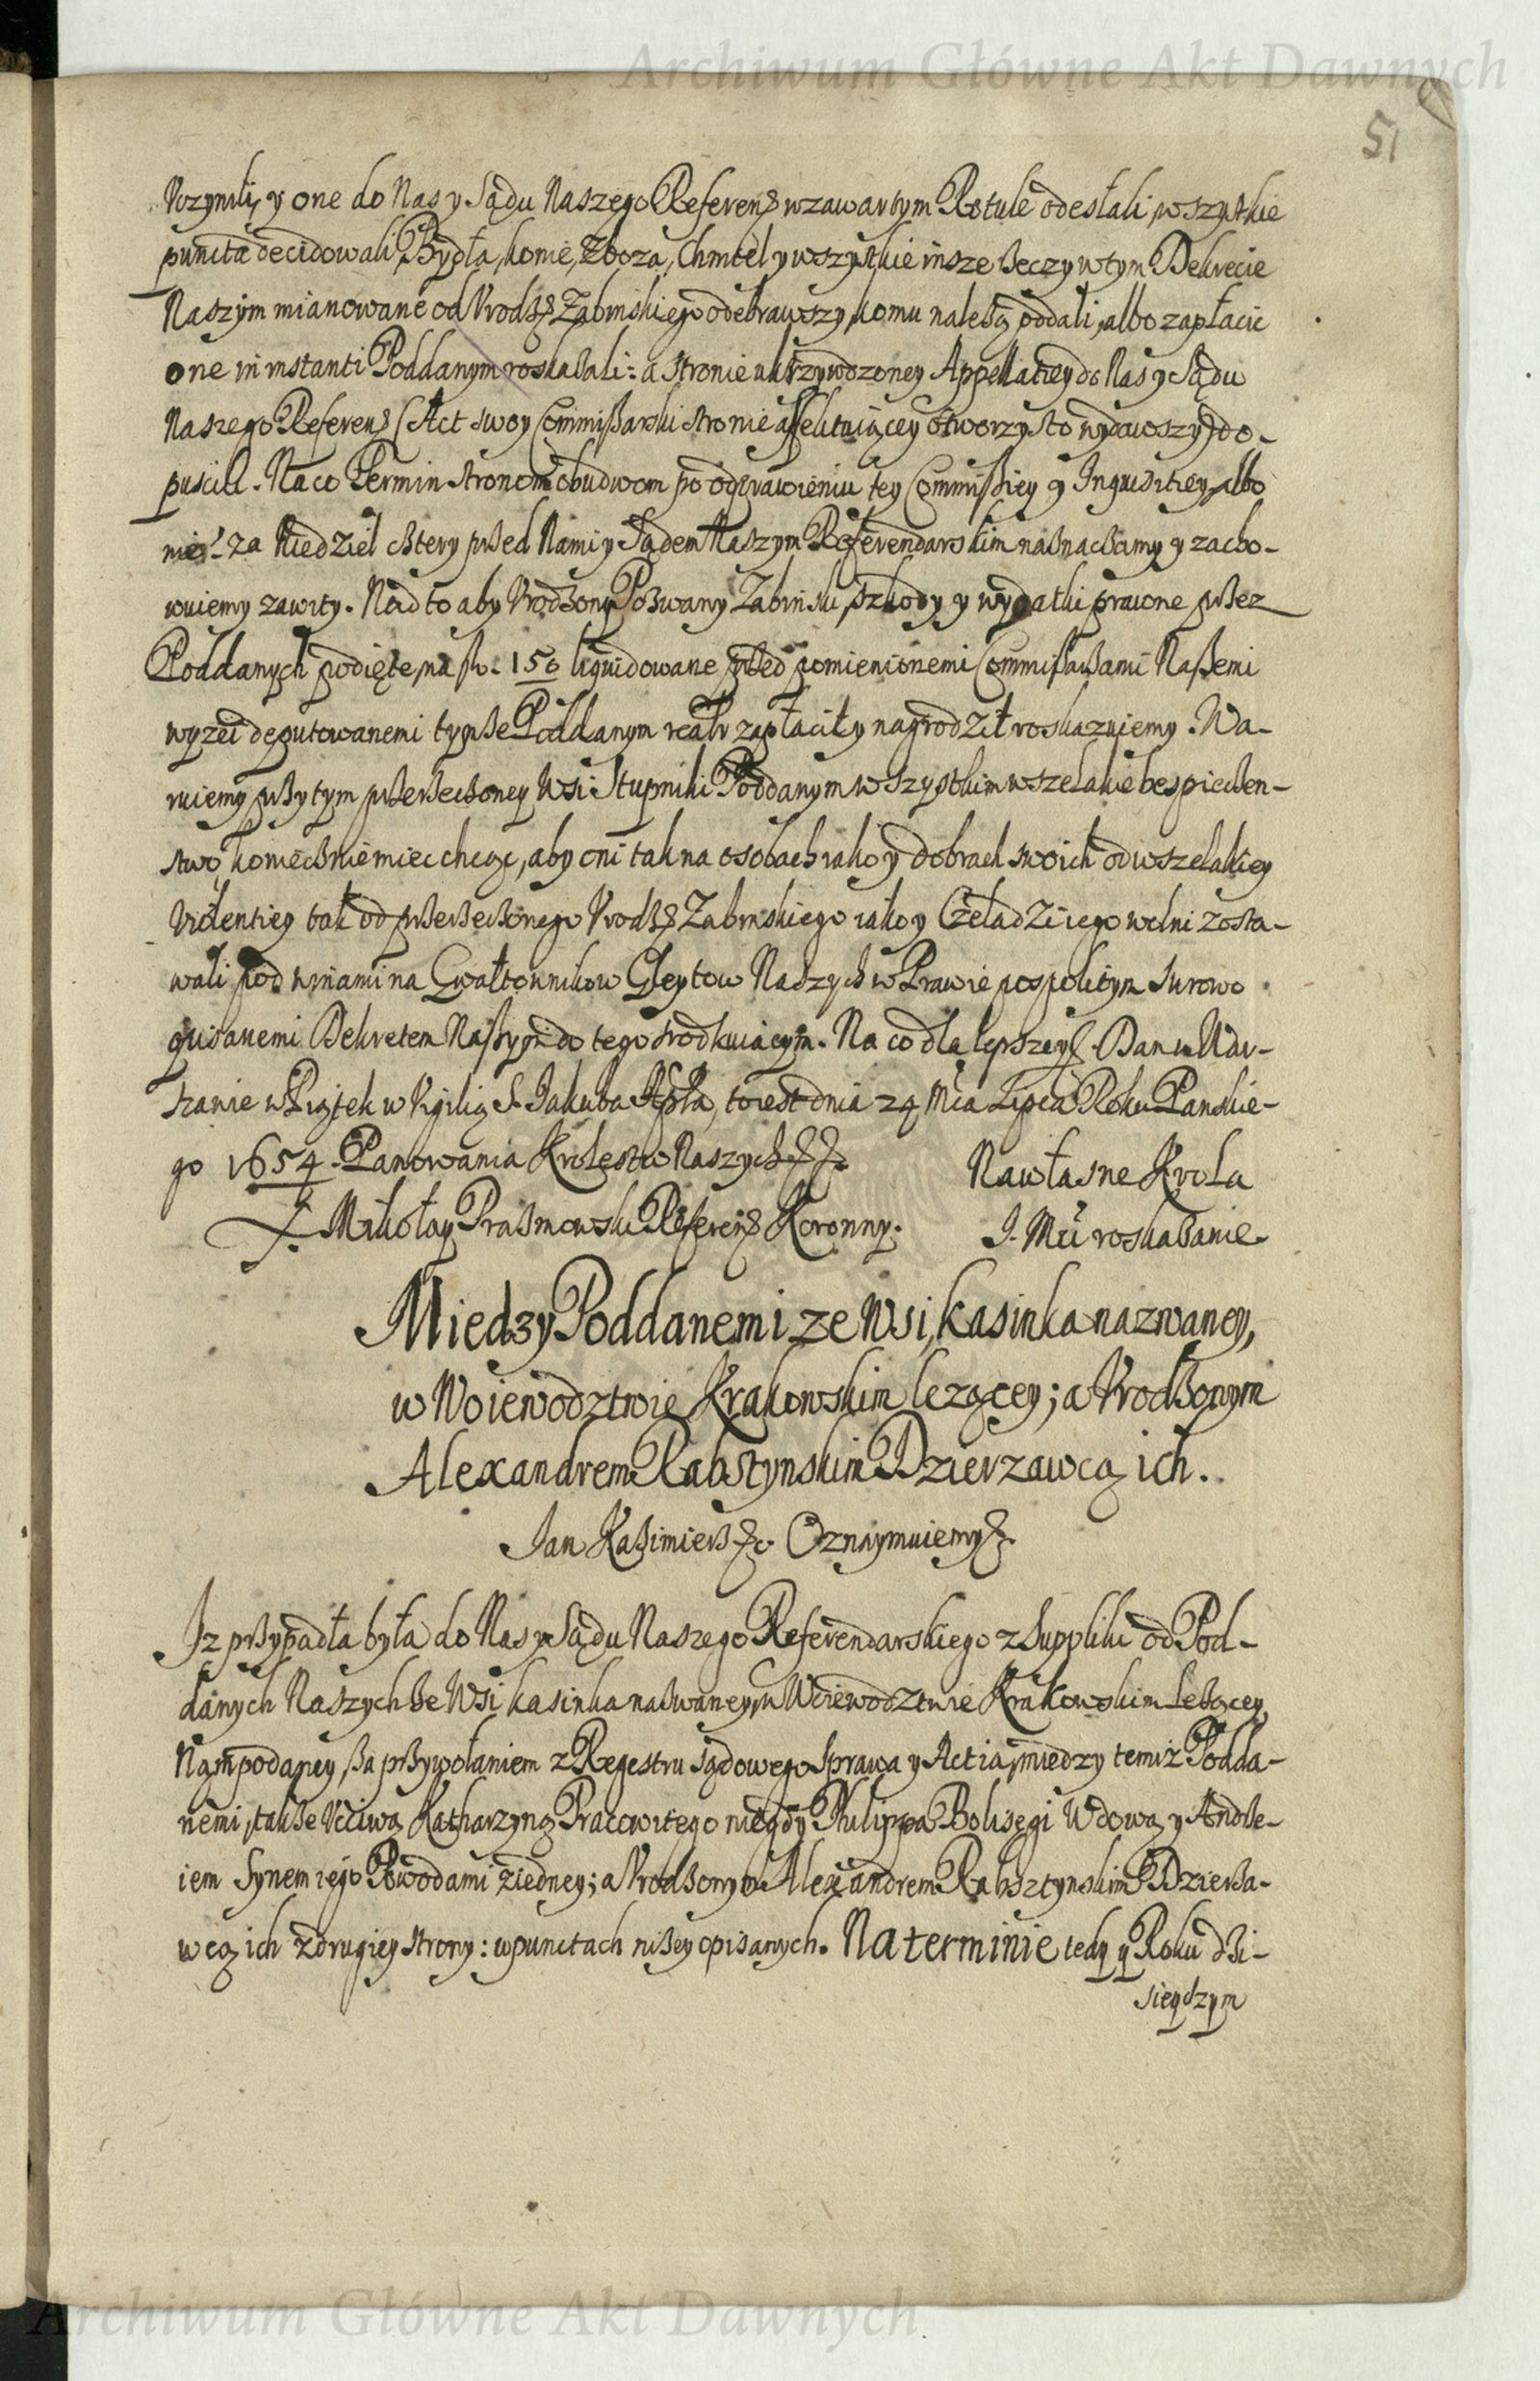 Archiwum Główne Akt Dawnych
51
Vczynili, y one do Nas y Sądu Naszego Referen w zawartym Rotule odesłali, wszytkie
puncta decidowali, Bydła, konie, Zboza, Chmiel y wszytkie insze rzeczy w tym Dekrecie
Naszym mianowane od Vrodz Zabinskiego odebrawszy, komu nalezą oddali, albo zapłacic
one in instanti Poddanym roskazali: a stronie ukrzywdzoney Appellatiey do Nas y Sądu
Naszego Referen (Act swoy Commissarski stronie affektuiącey otworzysto wydawszy) do-
puscili. Na co Termin stronom obudwom po odprawieniu tey Commissiey y Inquisitiey albo
nie: za Niedziel cztery przed Nami y Sądem Naszym Referendarskim naznaczamy y zacho-
wuiemy zawity. Nad to aby Vrodzony Pozwany Zabinski, szkody y wydatki prawne przez
Poddanych podięte, na fl. 150 liquidowane przed pomienionemi Commissarzami Naszemi
wyzei deputowanemi tymze Poddanym realr zapłacił y nagrodził roskazuiemy. Wa-
ruiemy przytym przerzeczoney Wsi Stupniki Poddanym wszystkim wszelakie bespieczen-
stwo, koniecznie miec chcąc, aby oni tak na osobach iako y dobrach swoich od wszelakiey
Violentiey tak od przerzeczonego Vrodz Zabinskiego iako y Czeladzi iego wolni zosta-
wali pod winami na Gwałtownikow Gleytow Naszych w Prawie pospolitym surowo
opisanemi Dekretem Naszym do tego srodkuiącym. Na co dla lepszey. Dan w War-
szawie w Piątek w Vigilią S. Iakuba Appła, to iest dnia 24 Mca Lipca Roku Panskie-
go 1654. Panowania Krolestw Naszych
Na własne Krola
Mikołay Prazmowski Referen Koronny.
I. Mci roskazanie.
Miedzy Poddanemi ze Wsi, Kasinka nazwaney,
w Woiewodztwie Krakowskim lezącey; a Vrodzonym
Alexandrem Rabsztynskim Dzierzawcą ich.
Jan Kazimierz &c. Oznaymuiemy
Iz przypadła była do Nas y Sądu Naszego Referendarskiego z Suppliki od Pod-
danych Naszych ze Wsi Kasinka nazwaney, w Woiewodztwie Krakowskim lezącey,
Nam podaney, za przywołaniem z Regestru sądowego Sprawa y Actia, między temiz Podda-
nemi, takze Vcciwą Katharzyną Pracowitego niegdy Philippa Bolisęgi Wdową, y Andrze-
iem Synem iego Powodami z iedney; a Vrodzonym Alexandrem Rabsztynskim Dzierza-
wcą ich z drugiey strony: w punctach nizey opisanych. Na terminie tedy y Roku dzi-
sieyszym
Archiwum Główne Akt Dawnych